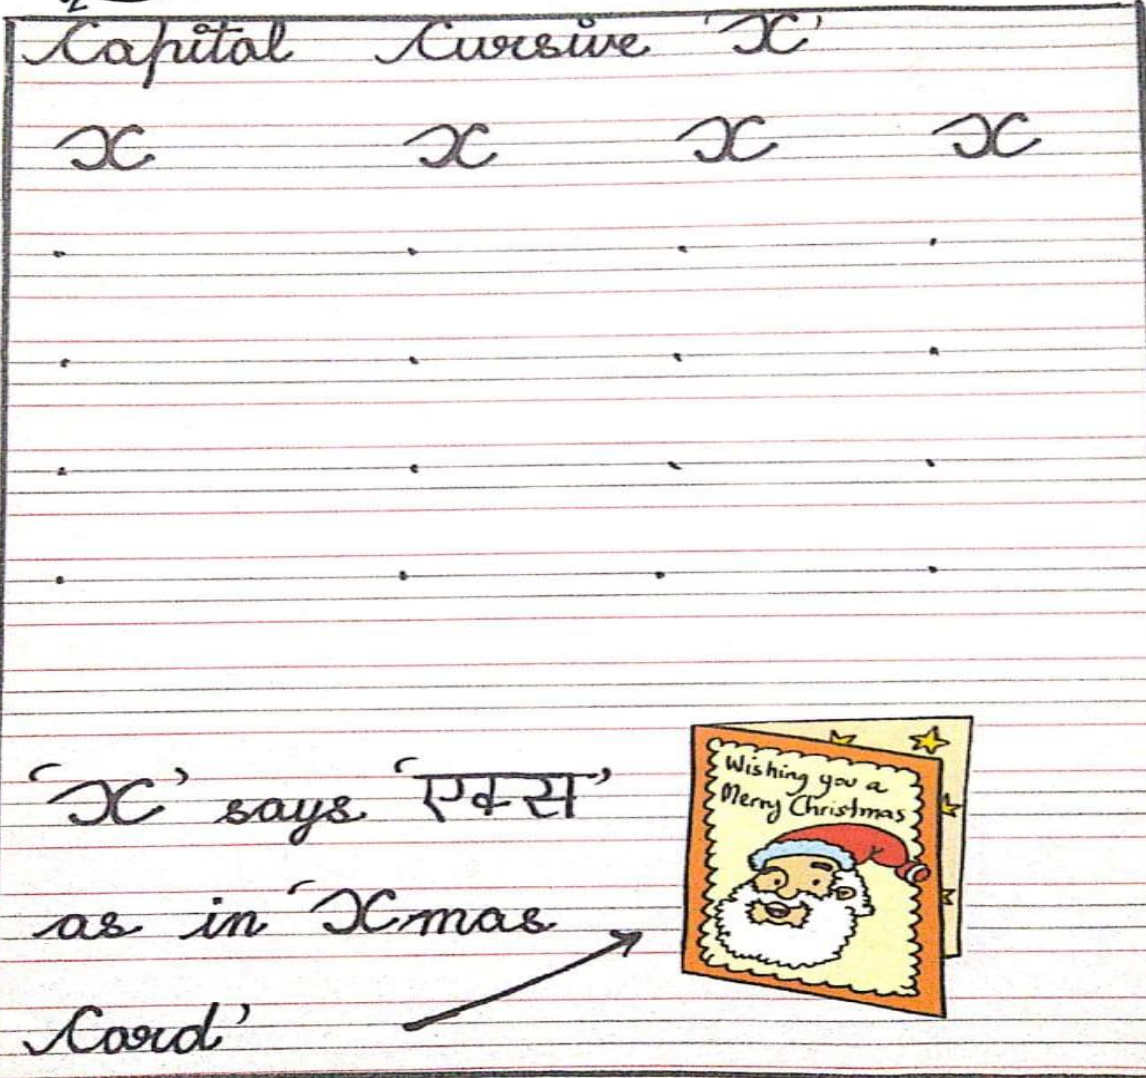 Capital Cursive 'X'
X X X X
'X' says 'एक्स'
as in 'Xmas
Card'
Wishing you a
Merry Christmas